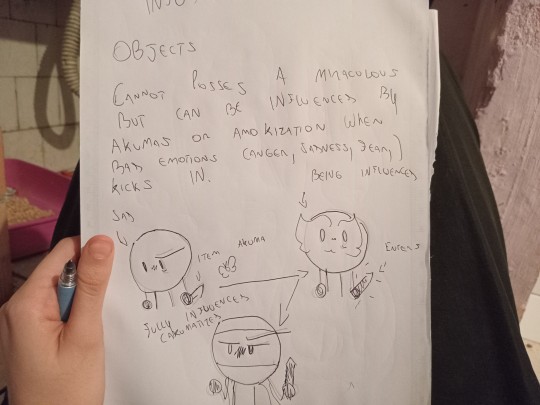 OBJECTS
CANNOT POSSES A MIRACULOUS
BUT CAN BE INFLUENCES BY
AKUMAS OR AMOKIZATION WHEN
BAD EMOTIONS (ANGER, SADNESS, FEAR,)
KICKS IN.
BEING INFLUENCED
SAD
ITEM
AKUMA
ENTERS
FULLY INFLUENCES
(AKUMATIZED